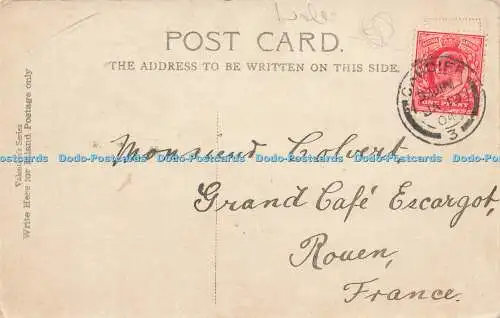 POST CARD.
THE ADDRESS TO BE WRITTEN ON THIS SIDE.
Valentine's Series
Write Here for Inland Postage only
CARDIFF
3
ONE PENNY
Monsieur Colvert
Dodo-Postcards Dodo-Postcards Dodo-Postcards Dodo-Postcards Dodo-Postcards
Grand Café Escargot,
Rouen,
France.